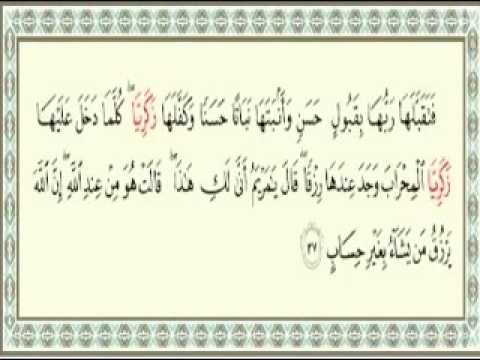 فَتَقَبَّلَهَا رَبُّهَا بِقَبُولٍ حَسَنٍ وَأَنۢبَتَهَا نَبَاتًا حَسَنًا وَكَفَّلَهَا زَكَرِيَّا ۖ كُلَّمَا دَخَلَ عَلَيْهَا
زَكَرِيَّا ٱلْمِحْرَابَ وَجَدَ عِندَهَا رِزْقًا ۖ قَالَ يَٰمَرْيَمُ أَنَّىٰ لَكِ هَٰذَا ۖ قَالَتْ هُوَ مِنْ عِندِ ٱللَّهِ ۖ إِنَّ ٱللَّهَ
يَرْزُقُ مَن يَشَآءُ بِغَيْرِ حِسَابٍ ٣٧